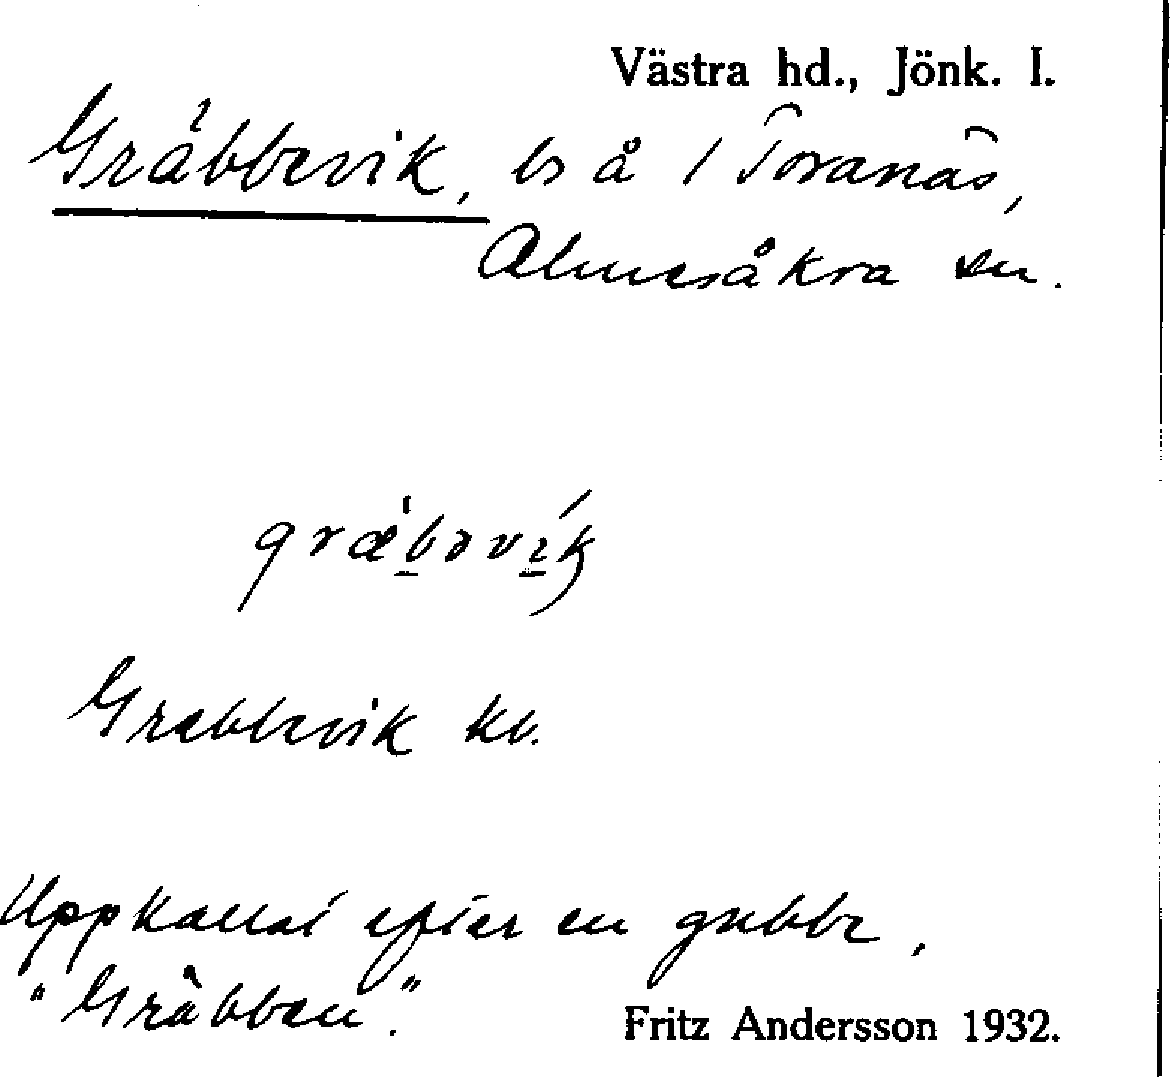 Västra hd., Jönk. l.
Gräbbevik, ls å / Toranäs,
Almesåkra sn.
græbəvik
Grebbevik kv.
Uppkallat efter en gubbe,
"Gräbben".
Fritz Andersson 1932.